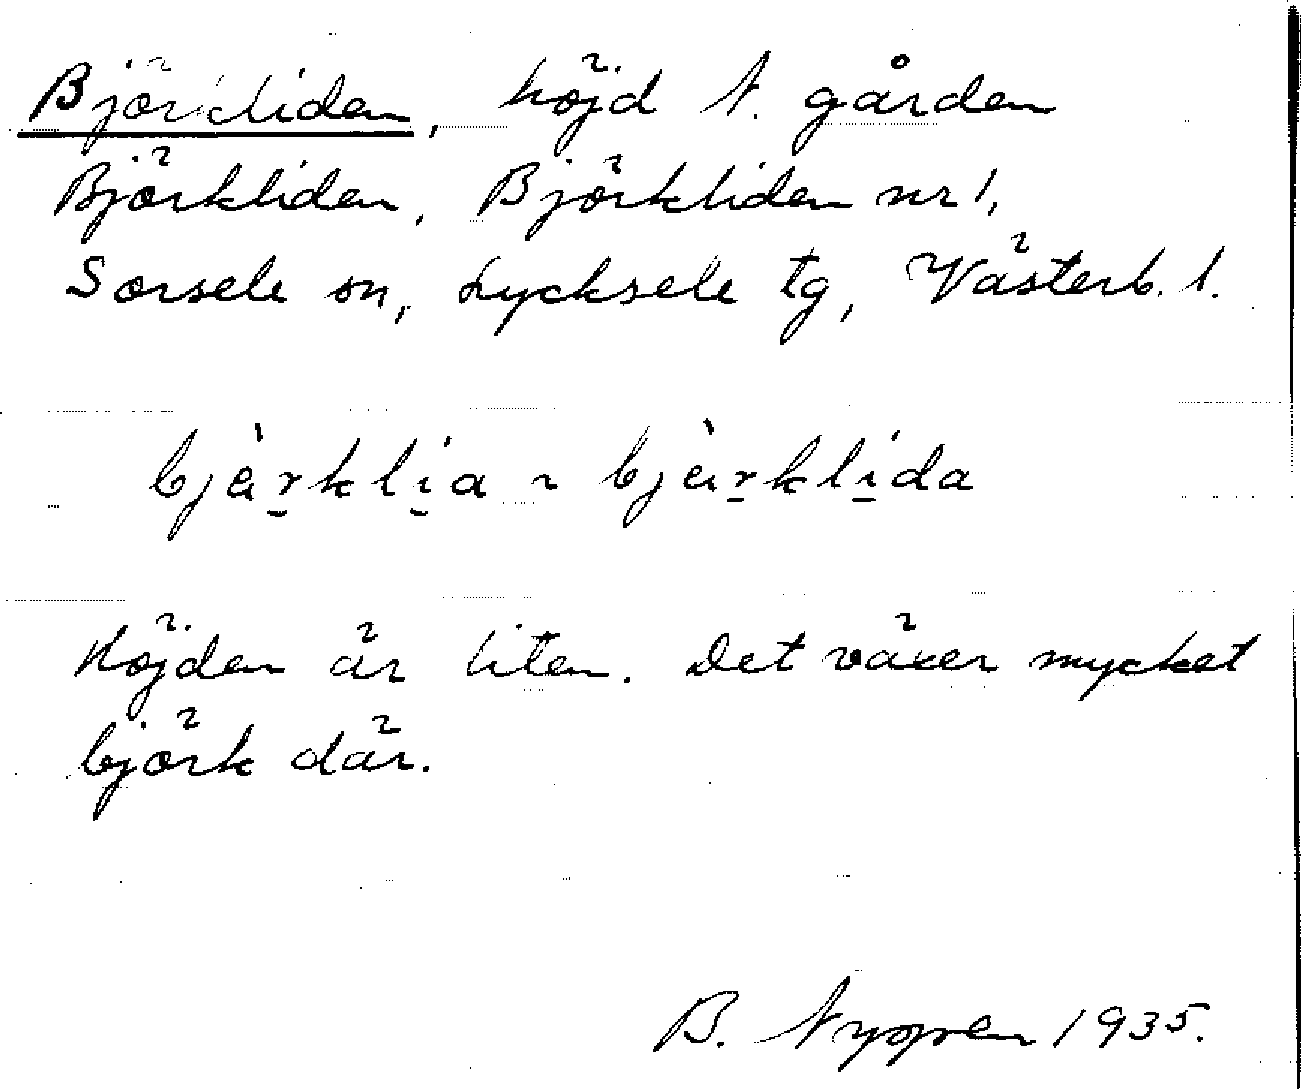 Björkliden, höjd N. gården
Björkliden, Björkliden nr 1,
Sorsele sn, Lycksele tg, Västerb. l.
bjèr̠klí̠a ~ bjèr̠klí̠da
Höjden är liten. Det växer mycket
björk där.
B. 1935.